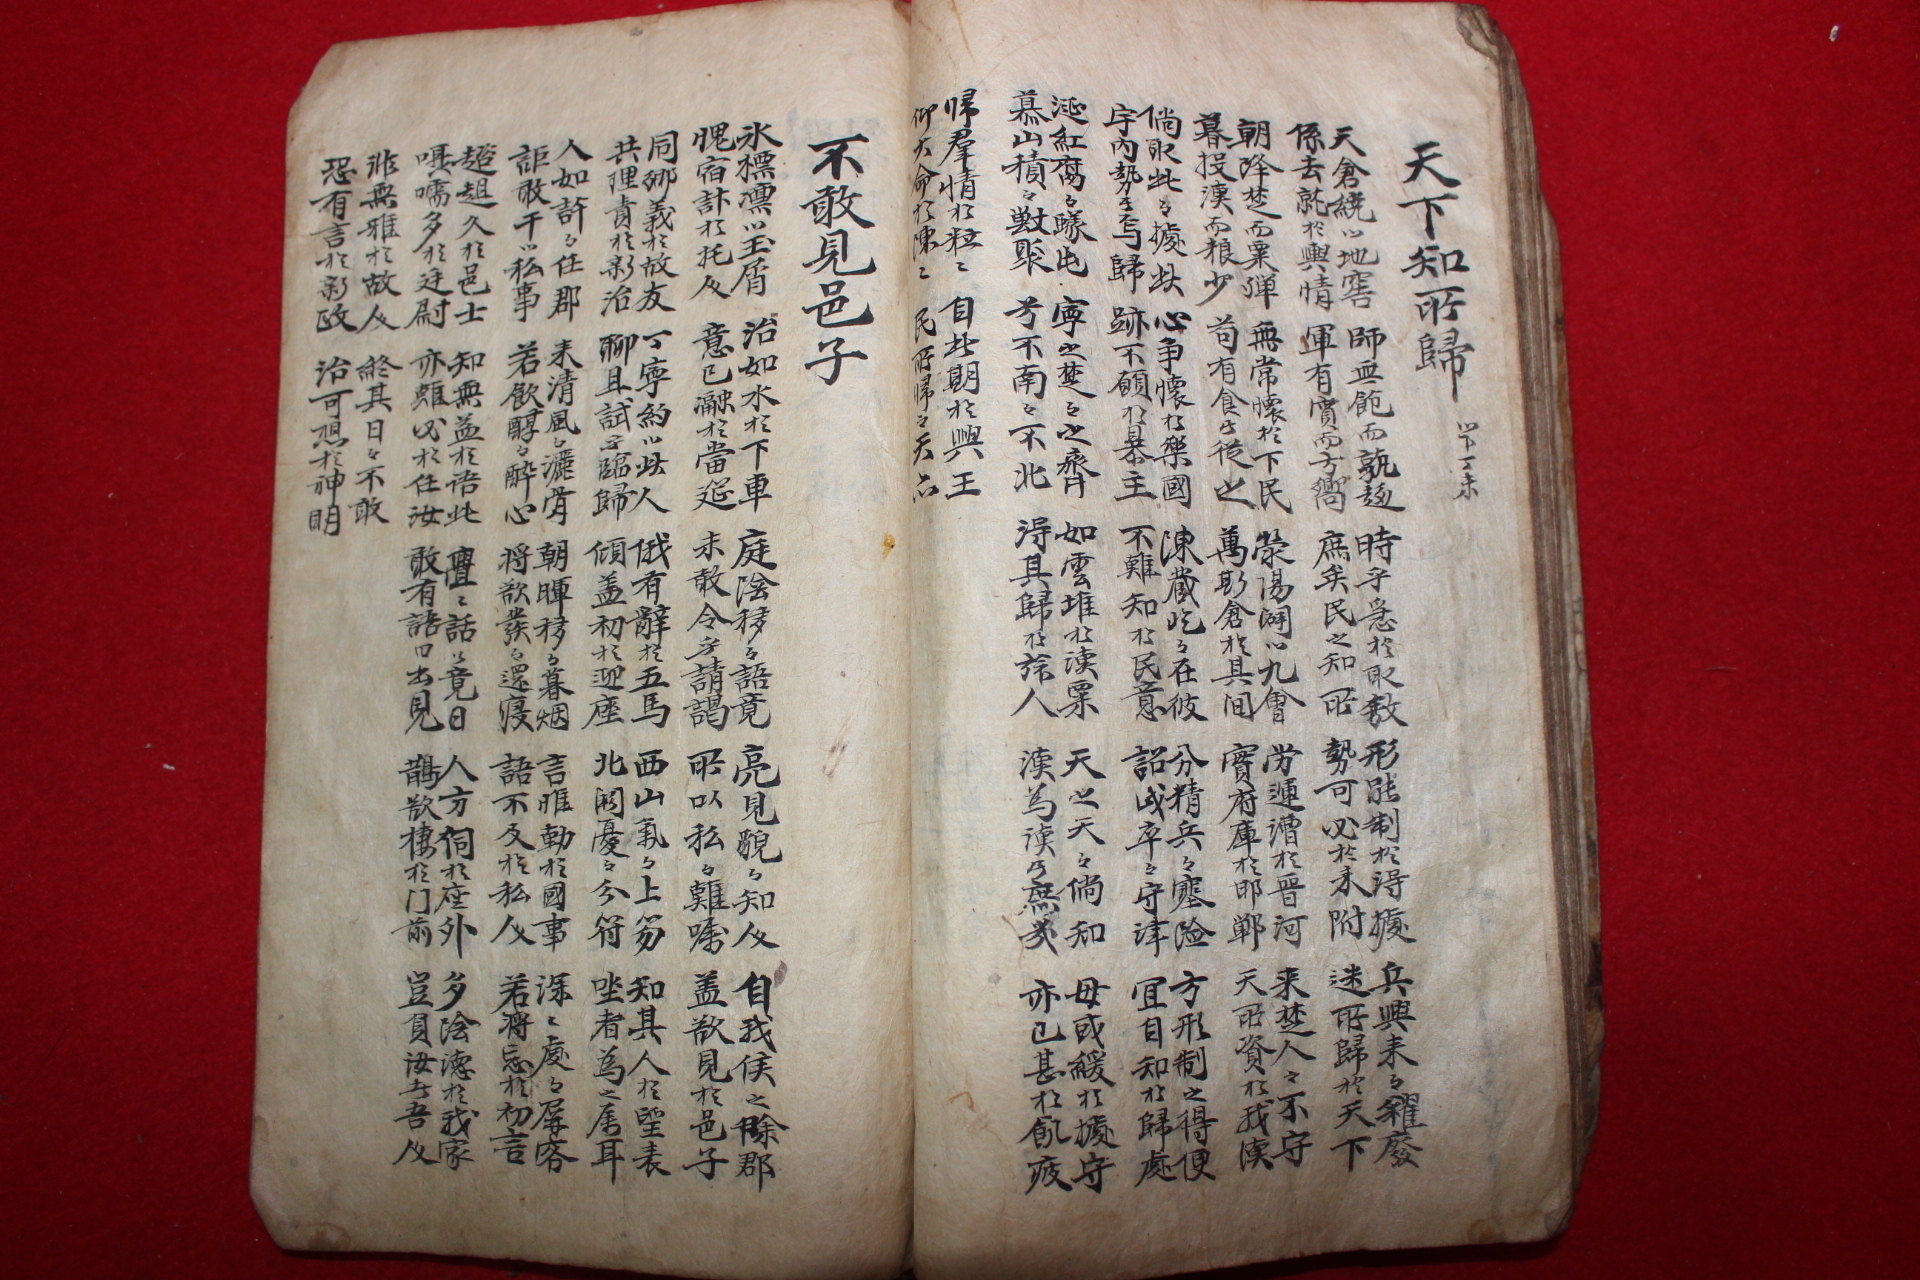 天下知所歸 以下丁未
天倉繞以地窖 師無飽而孰趨 時乎急於取敖 形能制於得據 兵興耒々糴廢
係去就於輿情 軍有實而方嚮 庶矣民之知所 勢可必於来附 迷所歸於天下
朝降楚而粟殫 無常懷於下民 滎陽闢以九會 勞運漕於晉河 来楚人々不守
暮投漢而粮少 苟有食乎従之 萬斯倉於其間 實府庫於邯鄲 天所資於我漢
倘取此々據此 心争懷於樂國 陳藏屹々在彼 分精兵々塞險 方形制之得便
宇內勢乎烏歸 跡不願於暴主 不難知於民意 詔戍卒々守津 宜自知於歸處
涎紅腐々蟻屯 寧之楚々之齊 如雲堆於漢粟 天之天々倘知 毋或緩於據守
慕山積々獸聚 兮不南々不北 得其歸於諸人 漢為漢兮無幾 亦已甚於飢疲
帰羣情於粒々 自此期於興王
仰大命於陳々 民所帰々天亦
不敢見邑子
氷標凛以玉屑 治如水於下車 庭陰移々語竟 亮見貌々知人 自我侯之除郡
愧宿計於托人 意已瀜於當筵 未敢令乎請謁 所以私々難囑 盖欲見於邑子
同鄉義於故友 丁寧約以此人 俄有辭於五馬 西山氣々上笏 知其人於望表
共理責於彰治 聊且試乎臨歸 傾盖初於迎座 北闕憂々分符 坐者為之属耳
人如許々任郡 来清風々灑骨 朝暉移々暮烟 言唯勤於國事 深々處々屏客
詎敢干以私事 若飲醇々醉心 将欲發々還寢 語不及於私人 若将忘於初言
趦趄久於邑士 知無益於語此 亹々話々竟日 人方伺於座外 多陰德於我家
囁嚅多於廷尉 亦難必於任汝 敢有語口出見 鵲欲棲於门前 豈負汝乎吾人
非無雅於故人 終其日々不敢
恐有言於彰政 治可想於神明